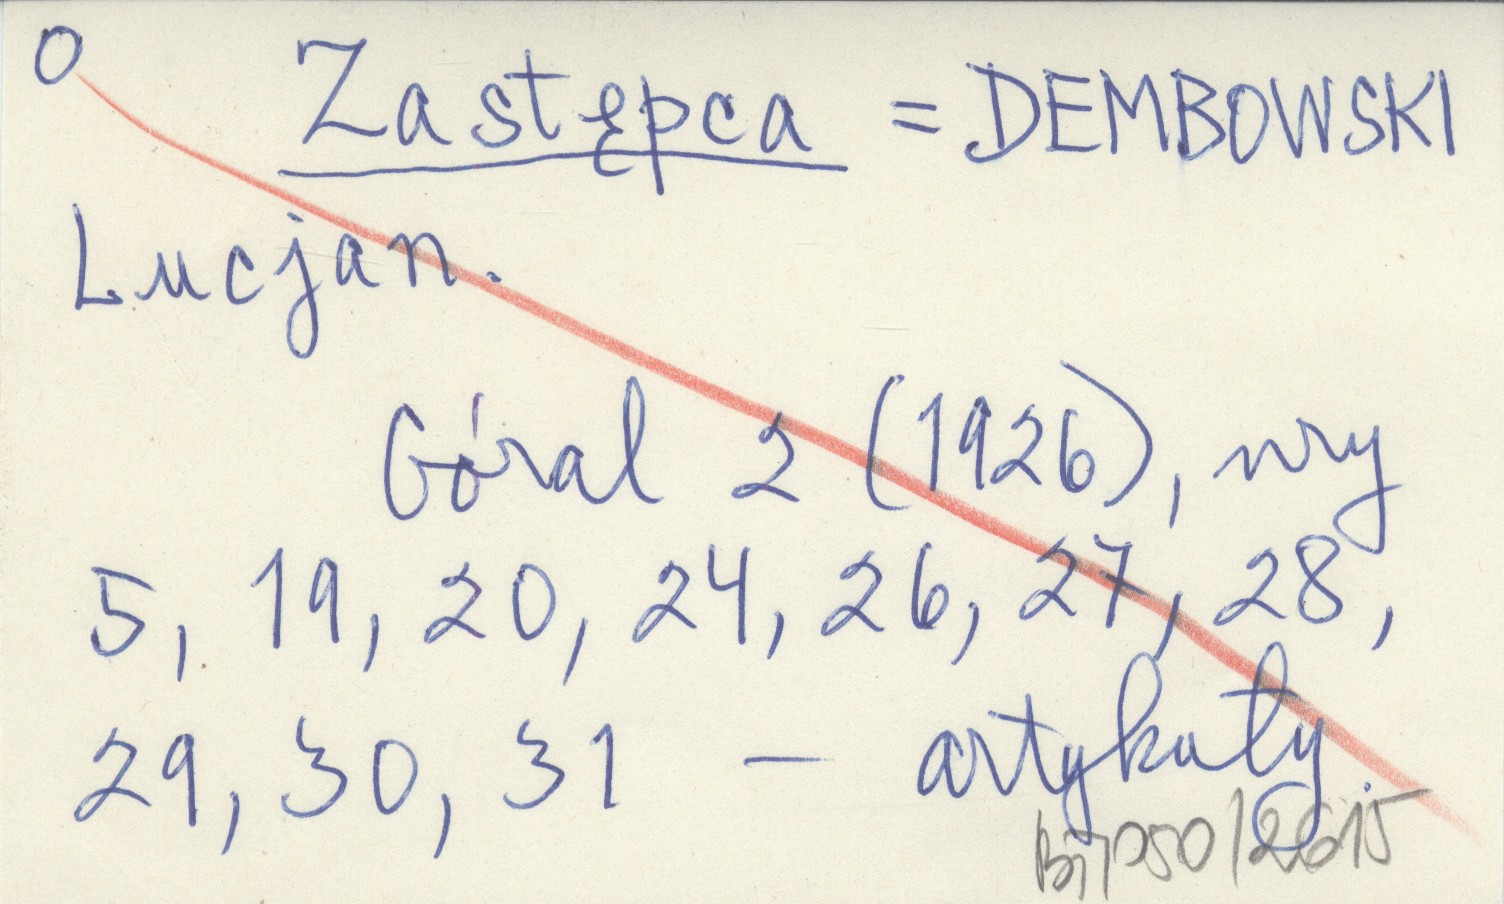 O Zastępca = DEMBOWSKI
Lucjan.
Góral 2 (1926), nry
5, 19, 20, 24, 26, 27, 28,
29, 30, 31 — artykuły.